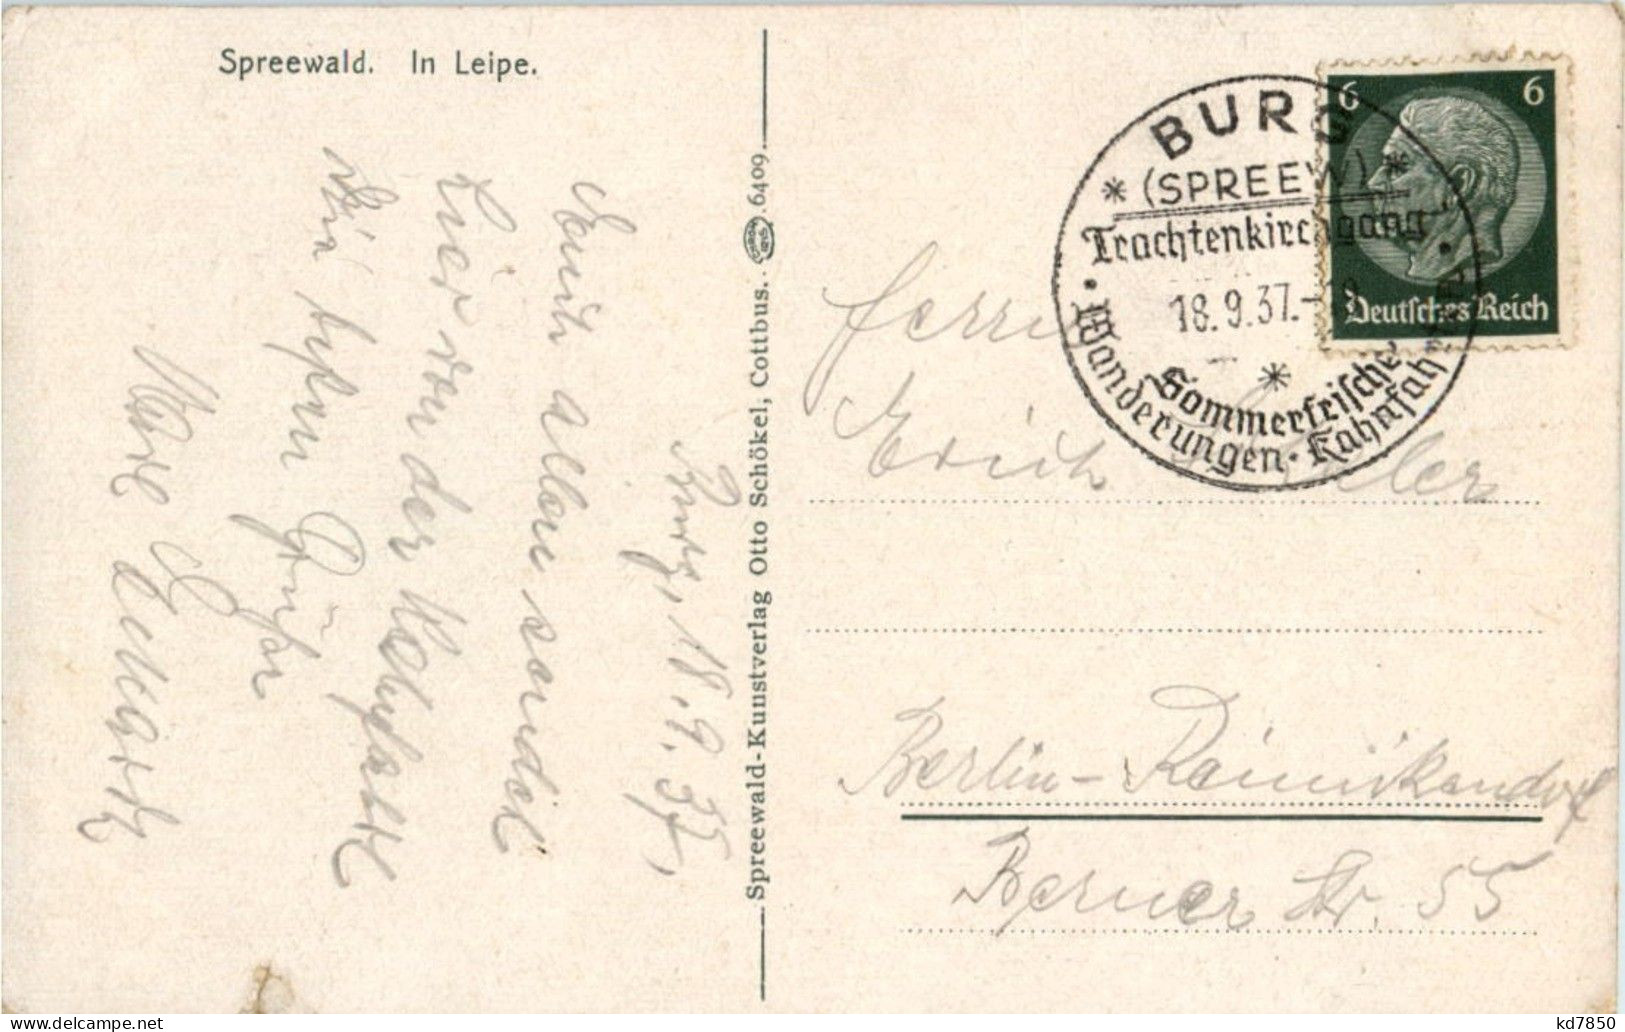 Spreewald. In Leipe.
Burg, 18.9.37,
Euch allen sendet
hier von der Kahnfahrt
die besten Grüße
Spreewald-Kunstverlag Otto Schökel, Cottbus. 6409
BURG
* (SPREEW) *
Trachtenkirchgang
18.9.37.-
Sommerfrische
Wanderungen · Kahnfah
6 6
Deutsches Reich
Herrn
Erich
Berlin-Reinickendorf
Berner Str. 55
kd7850